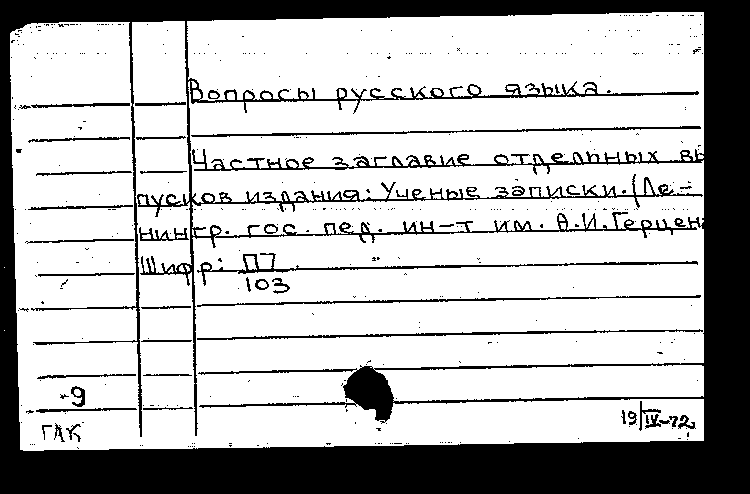 Вопросы русского языка.
Частное заглавие отдельных вы
пусков издания: Ученые записки. (Ле-
нингр. гос. пед. ин-т им. А.И. Герцена
Шифр: П7
103
-9
ГАК
19/IV-72